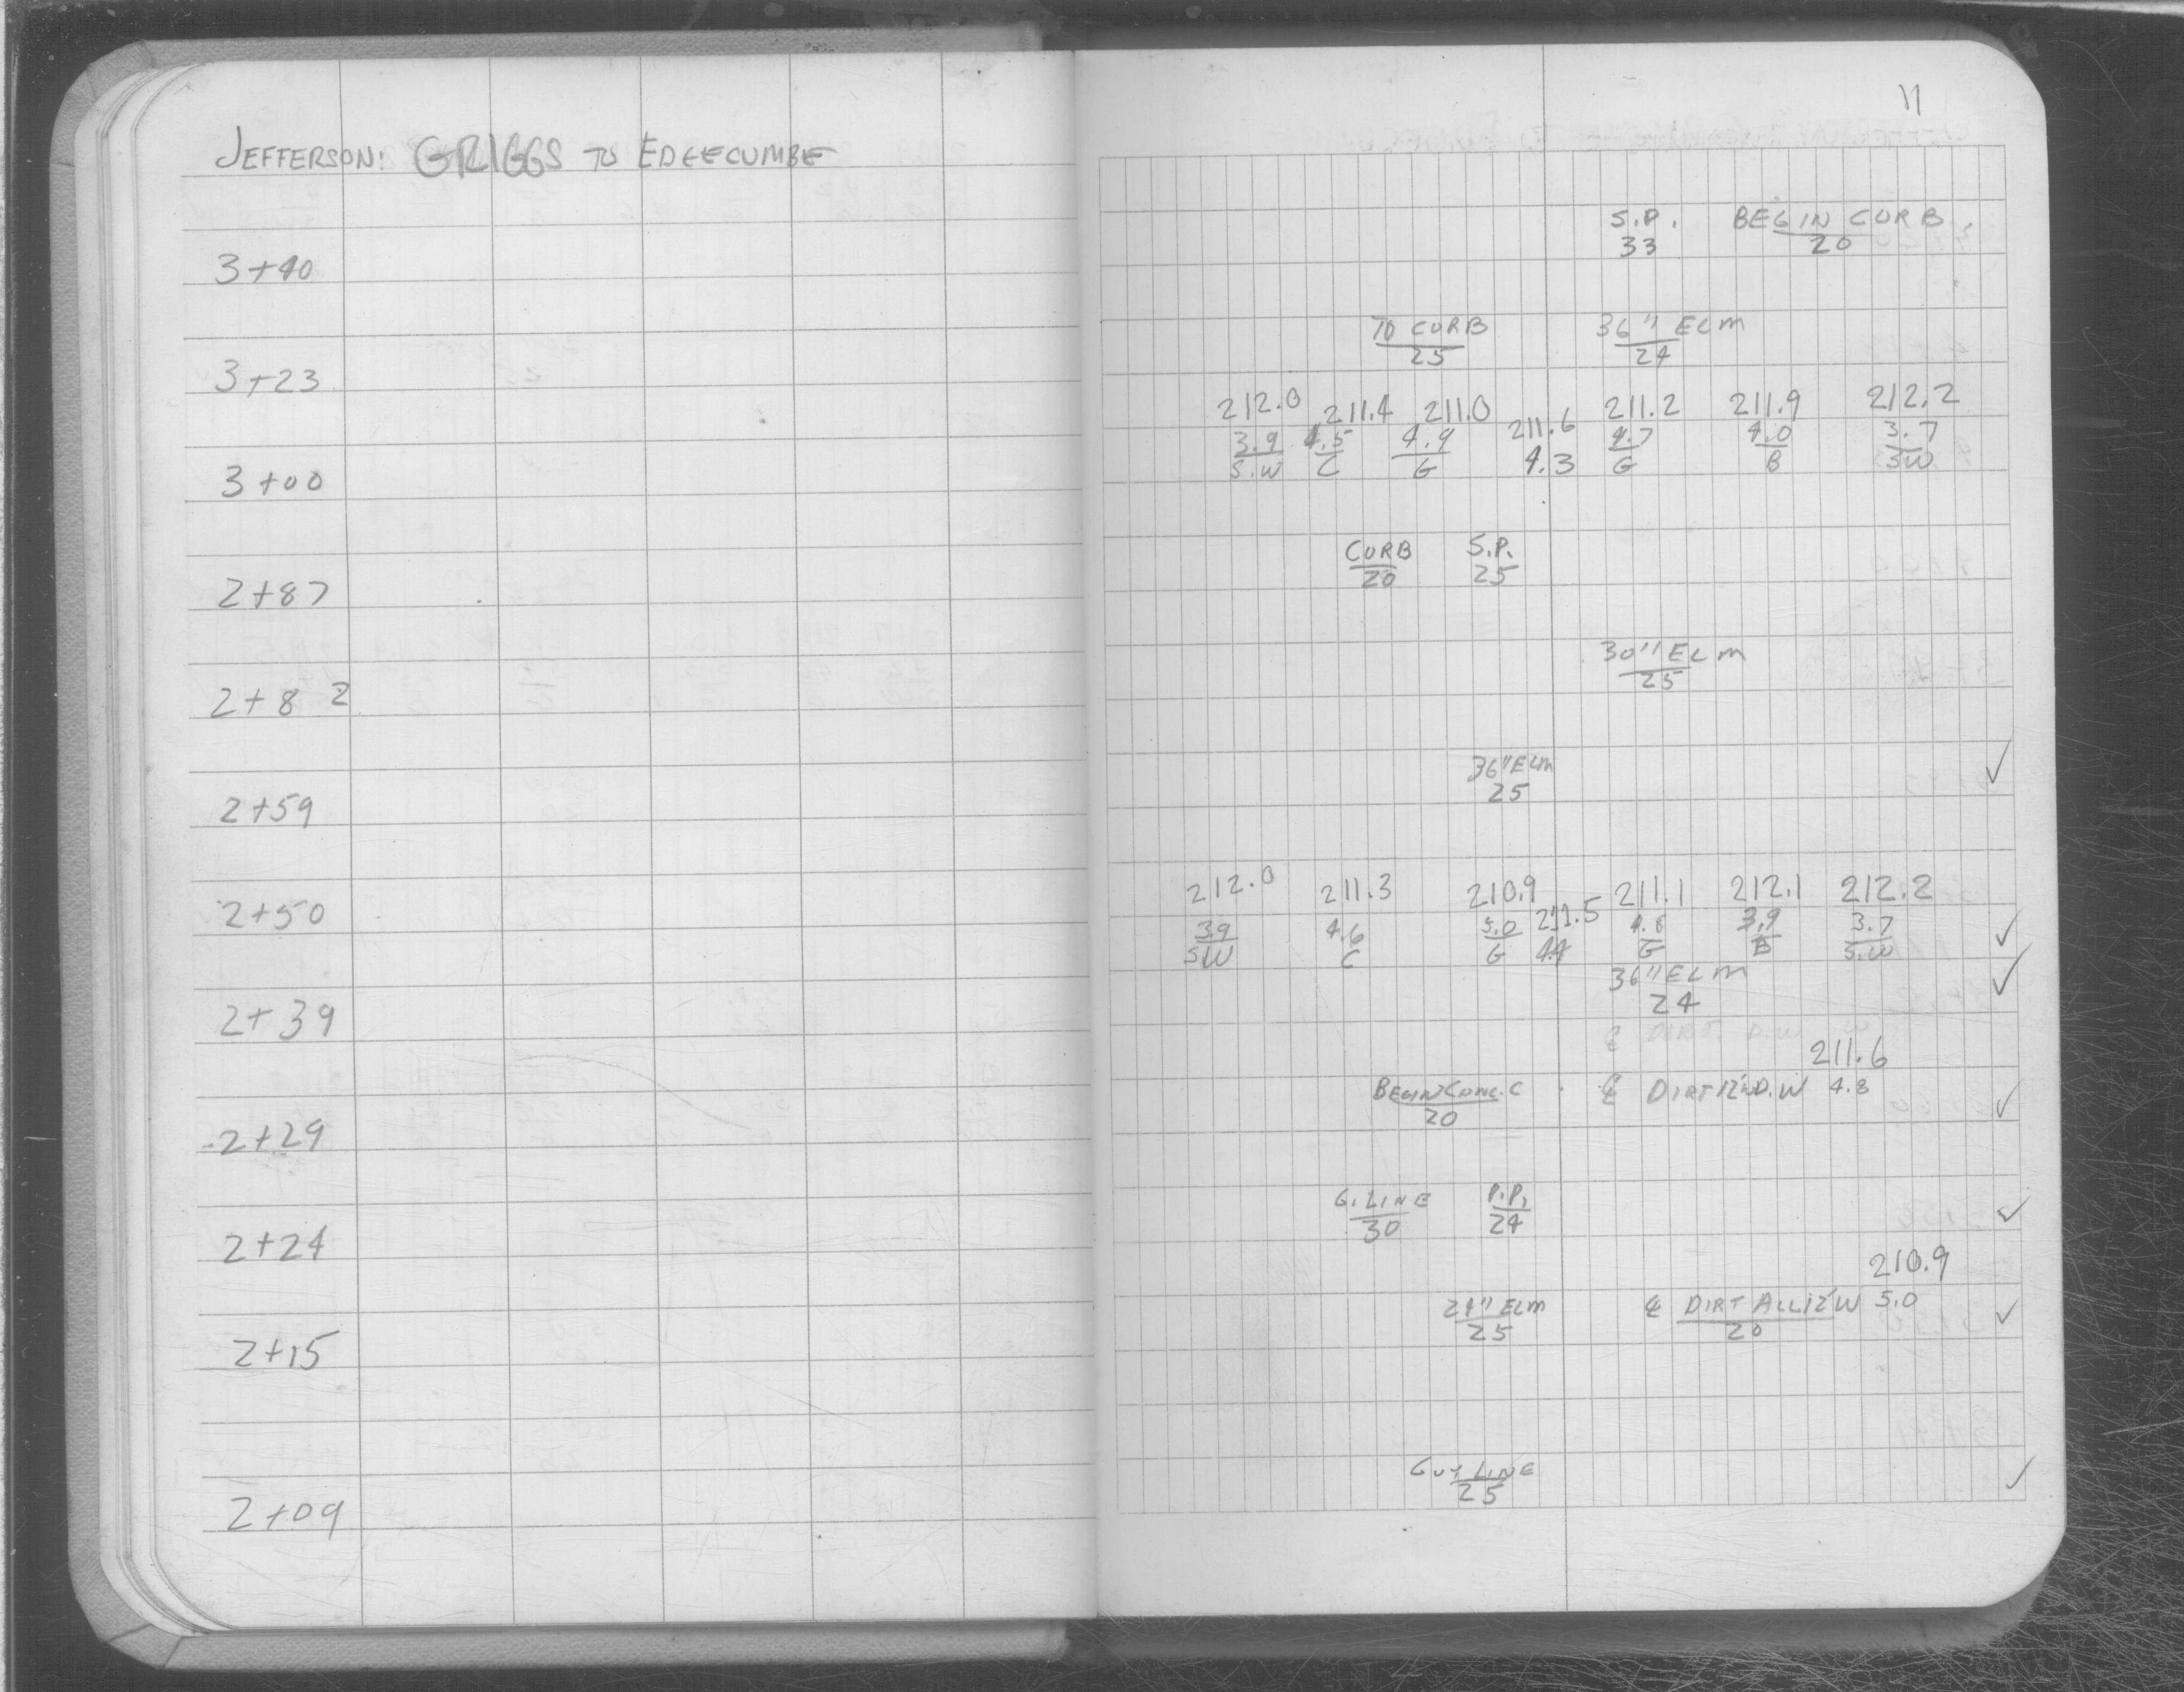 11
JEFFERSON: GRIGGS TO EDGECUMBE
S.P. BEGIN CURB.
33 20
3+40
TO CURB 36" ELM
25 24
3+23
212.0 211.4 211.0 211.6 211.2 211.9 212.2
3.9 4.5 4.9 4.3 4.7 4.0 3.7
S.W C G G B SW
3+00
CURB S.P.
20 25
2+87
30" ELM
25
2+82
36" ELM ✓
25
2+59
212.0 211.3 210.9 211.5 211.1 212.1 212.2
3.9 4.6 5.0 4.4 4.8 3.9 3.7 ✓
SW C G G B S.W
2+50
36" ELM ✓
24
2+39
℄ DIRT D.W
211.6
BEGIN CONC. C ℄ DIRT 12' D.W 4.3 ✓
20
2+29
G. LINE P.P. ✓
30 24
2+24
210.9
24" ELM ℄ DIRT ALL 12' W 5.0 ✓
25 20
2+15
GUY LINE ✓
25
2+09